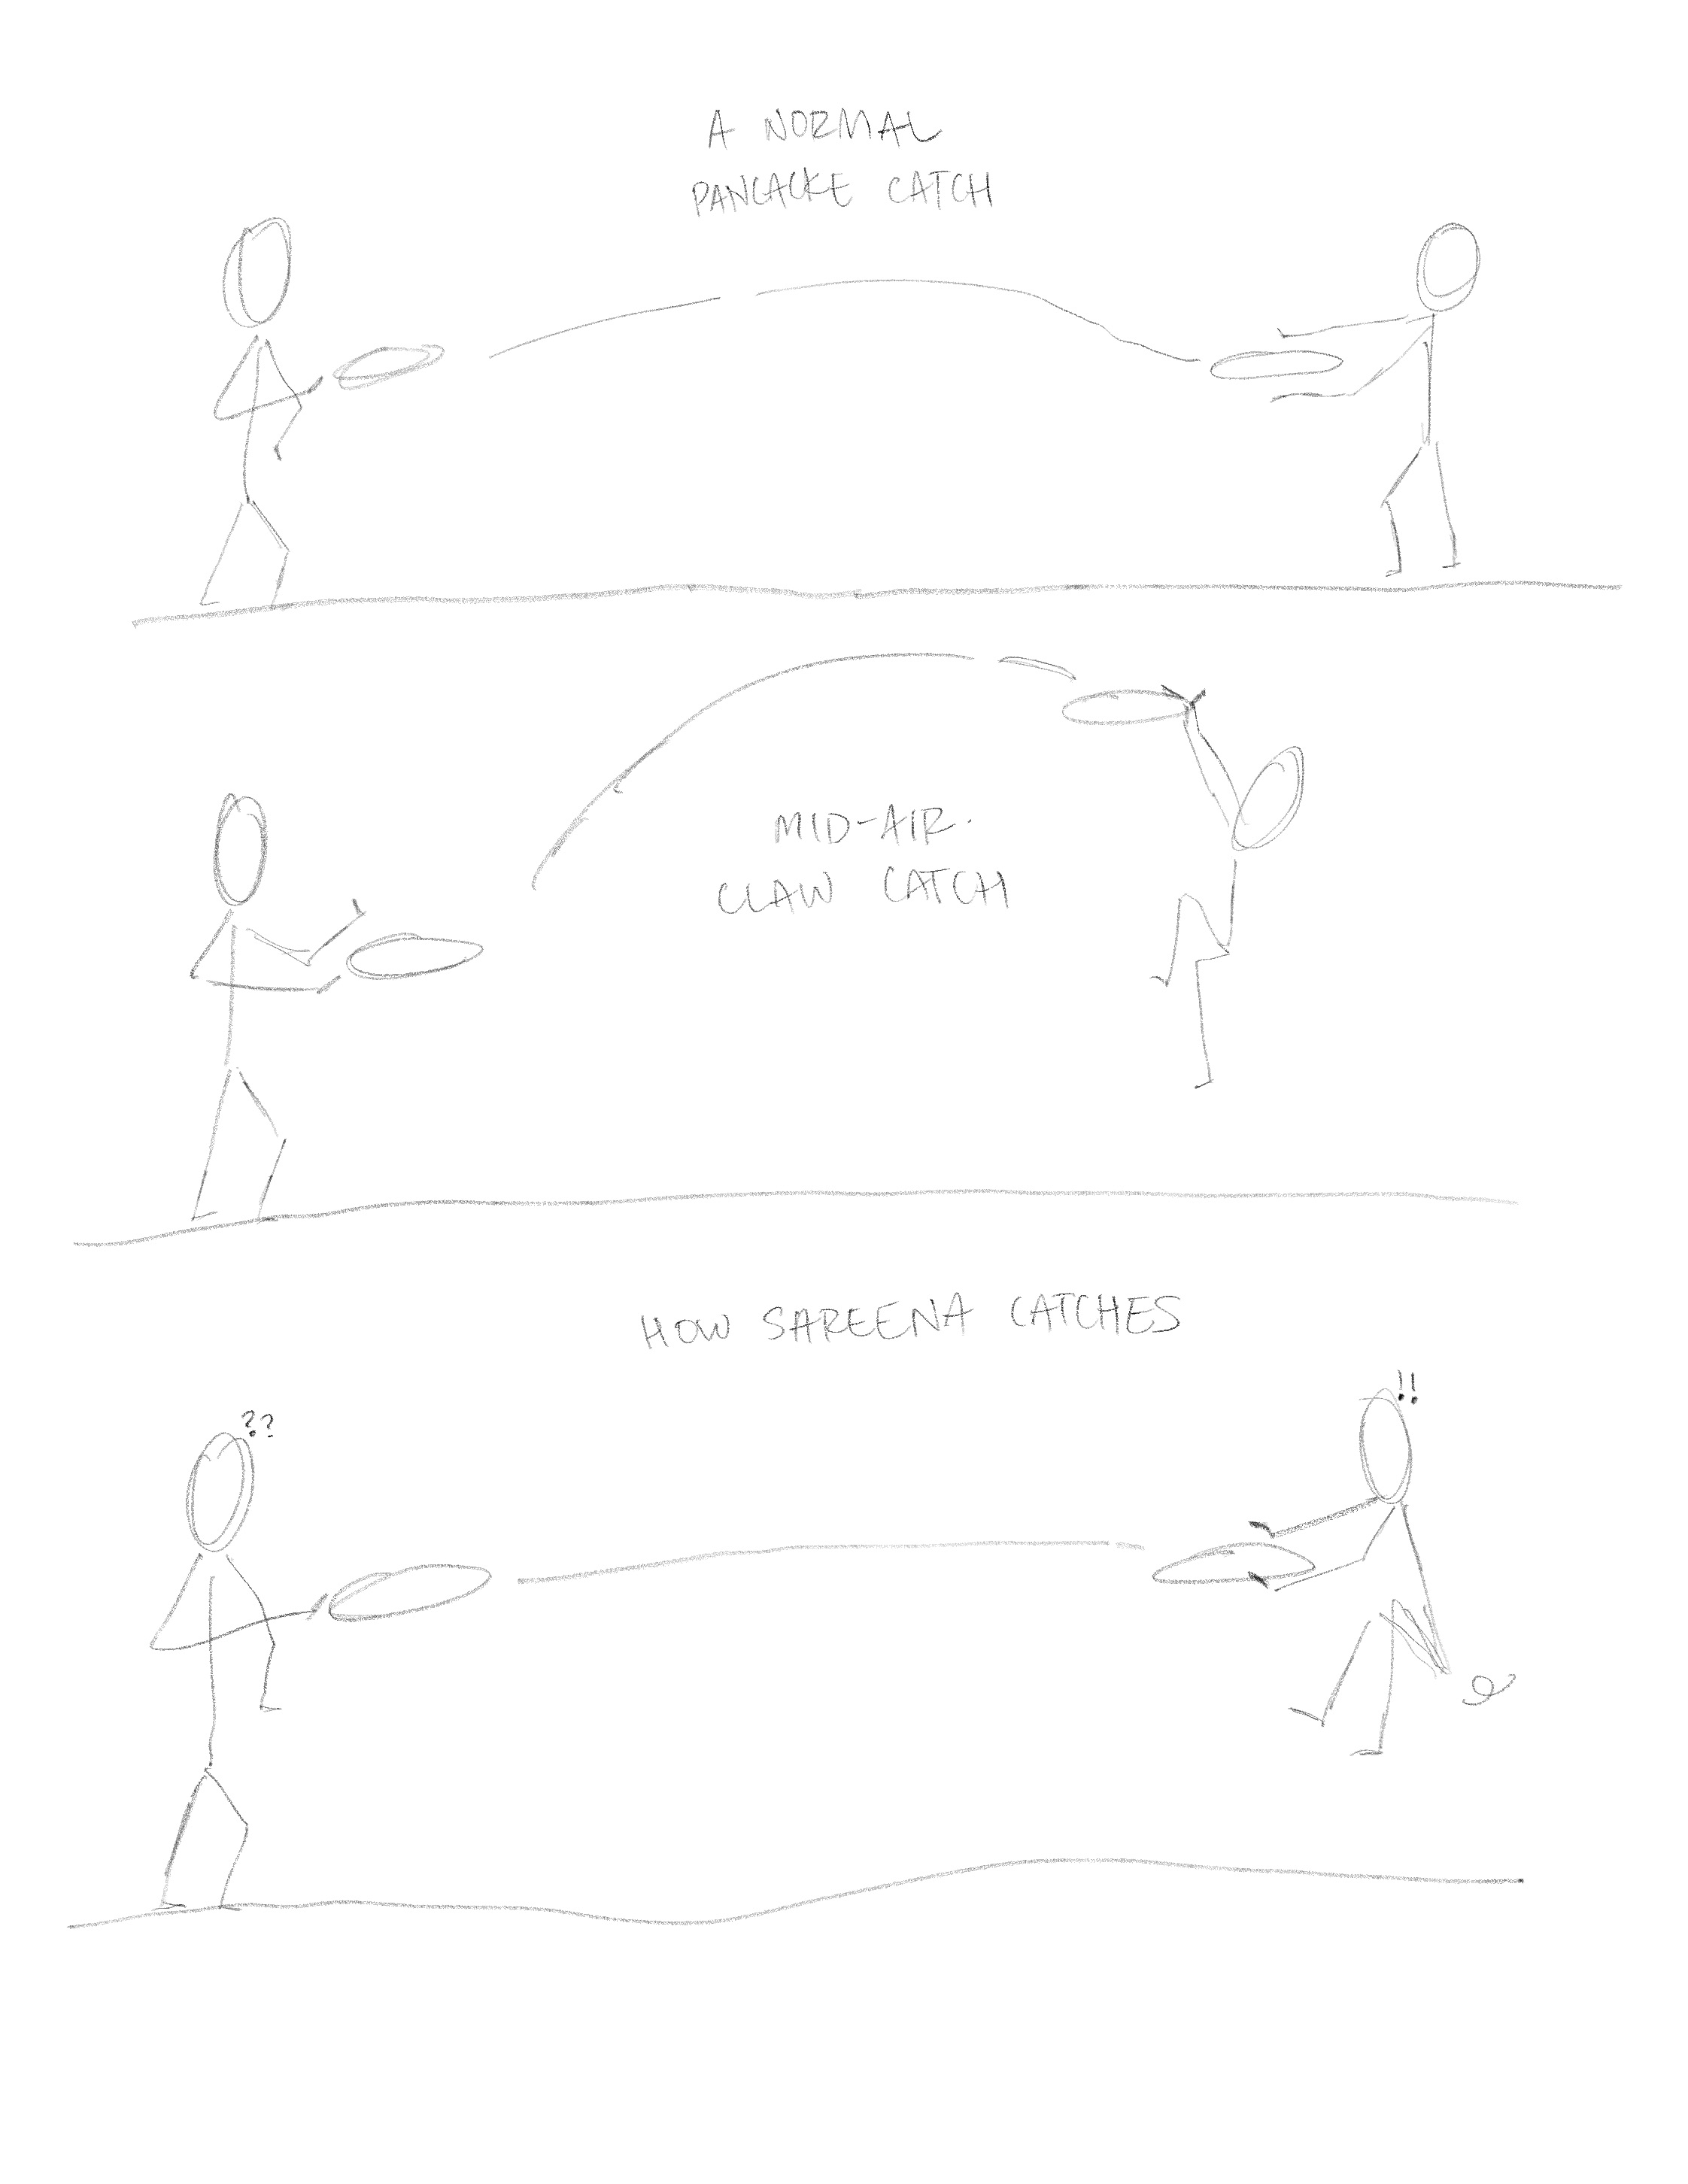 A NORMAL
PANCACKE CATCH
MID-AIR.
CLAW CATCH
HOW SAREENA CATCHES
!!
??